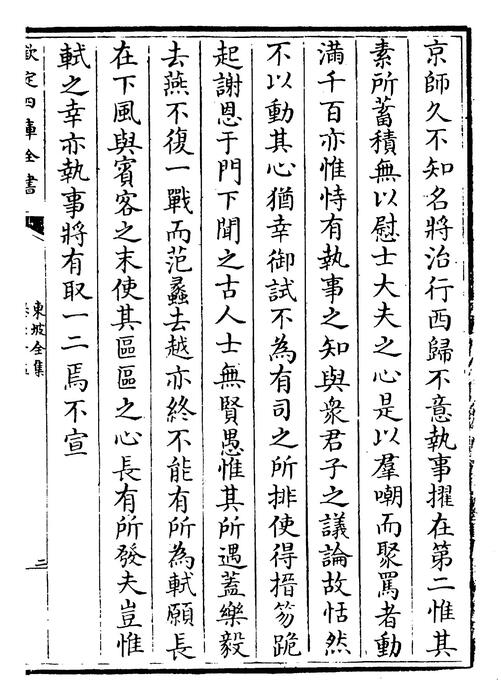 京師久不知名將治行西歸不意執事擢在第二惟其
素所蓄積無以慰士大夫之心是以羣嘲而聚罵者動
滿千百亦惟恃有執事之知與衆君子之議論故恬然
不以動其心猶幸御試不為有司之所排使得搢笏跪
起謝恩于門下聞之古人士無賢愚惟其所遇蓋樂毅
去燕不復一戰而范蠡去越亦終不能有所為軾願長
在下風與賓客之末使其區區之心長有所發夫豈惟
軾之幸亦執事將有取一二焉不宣
欽定四庫全書
東坡全集
二